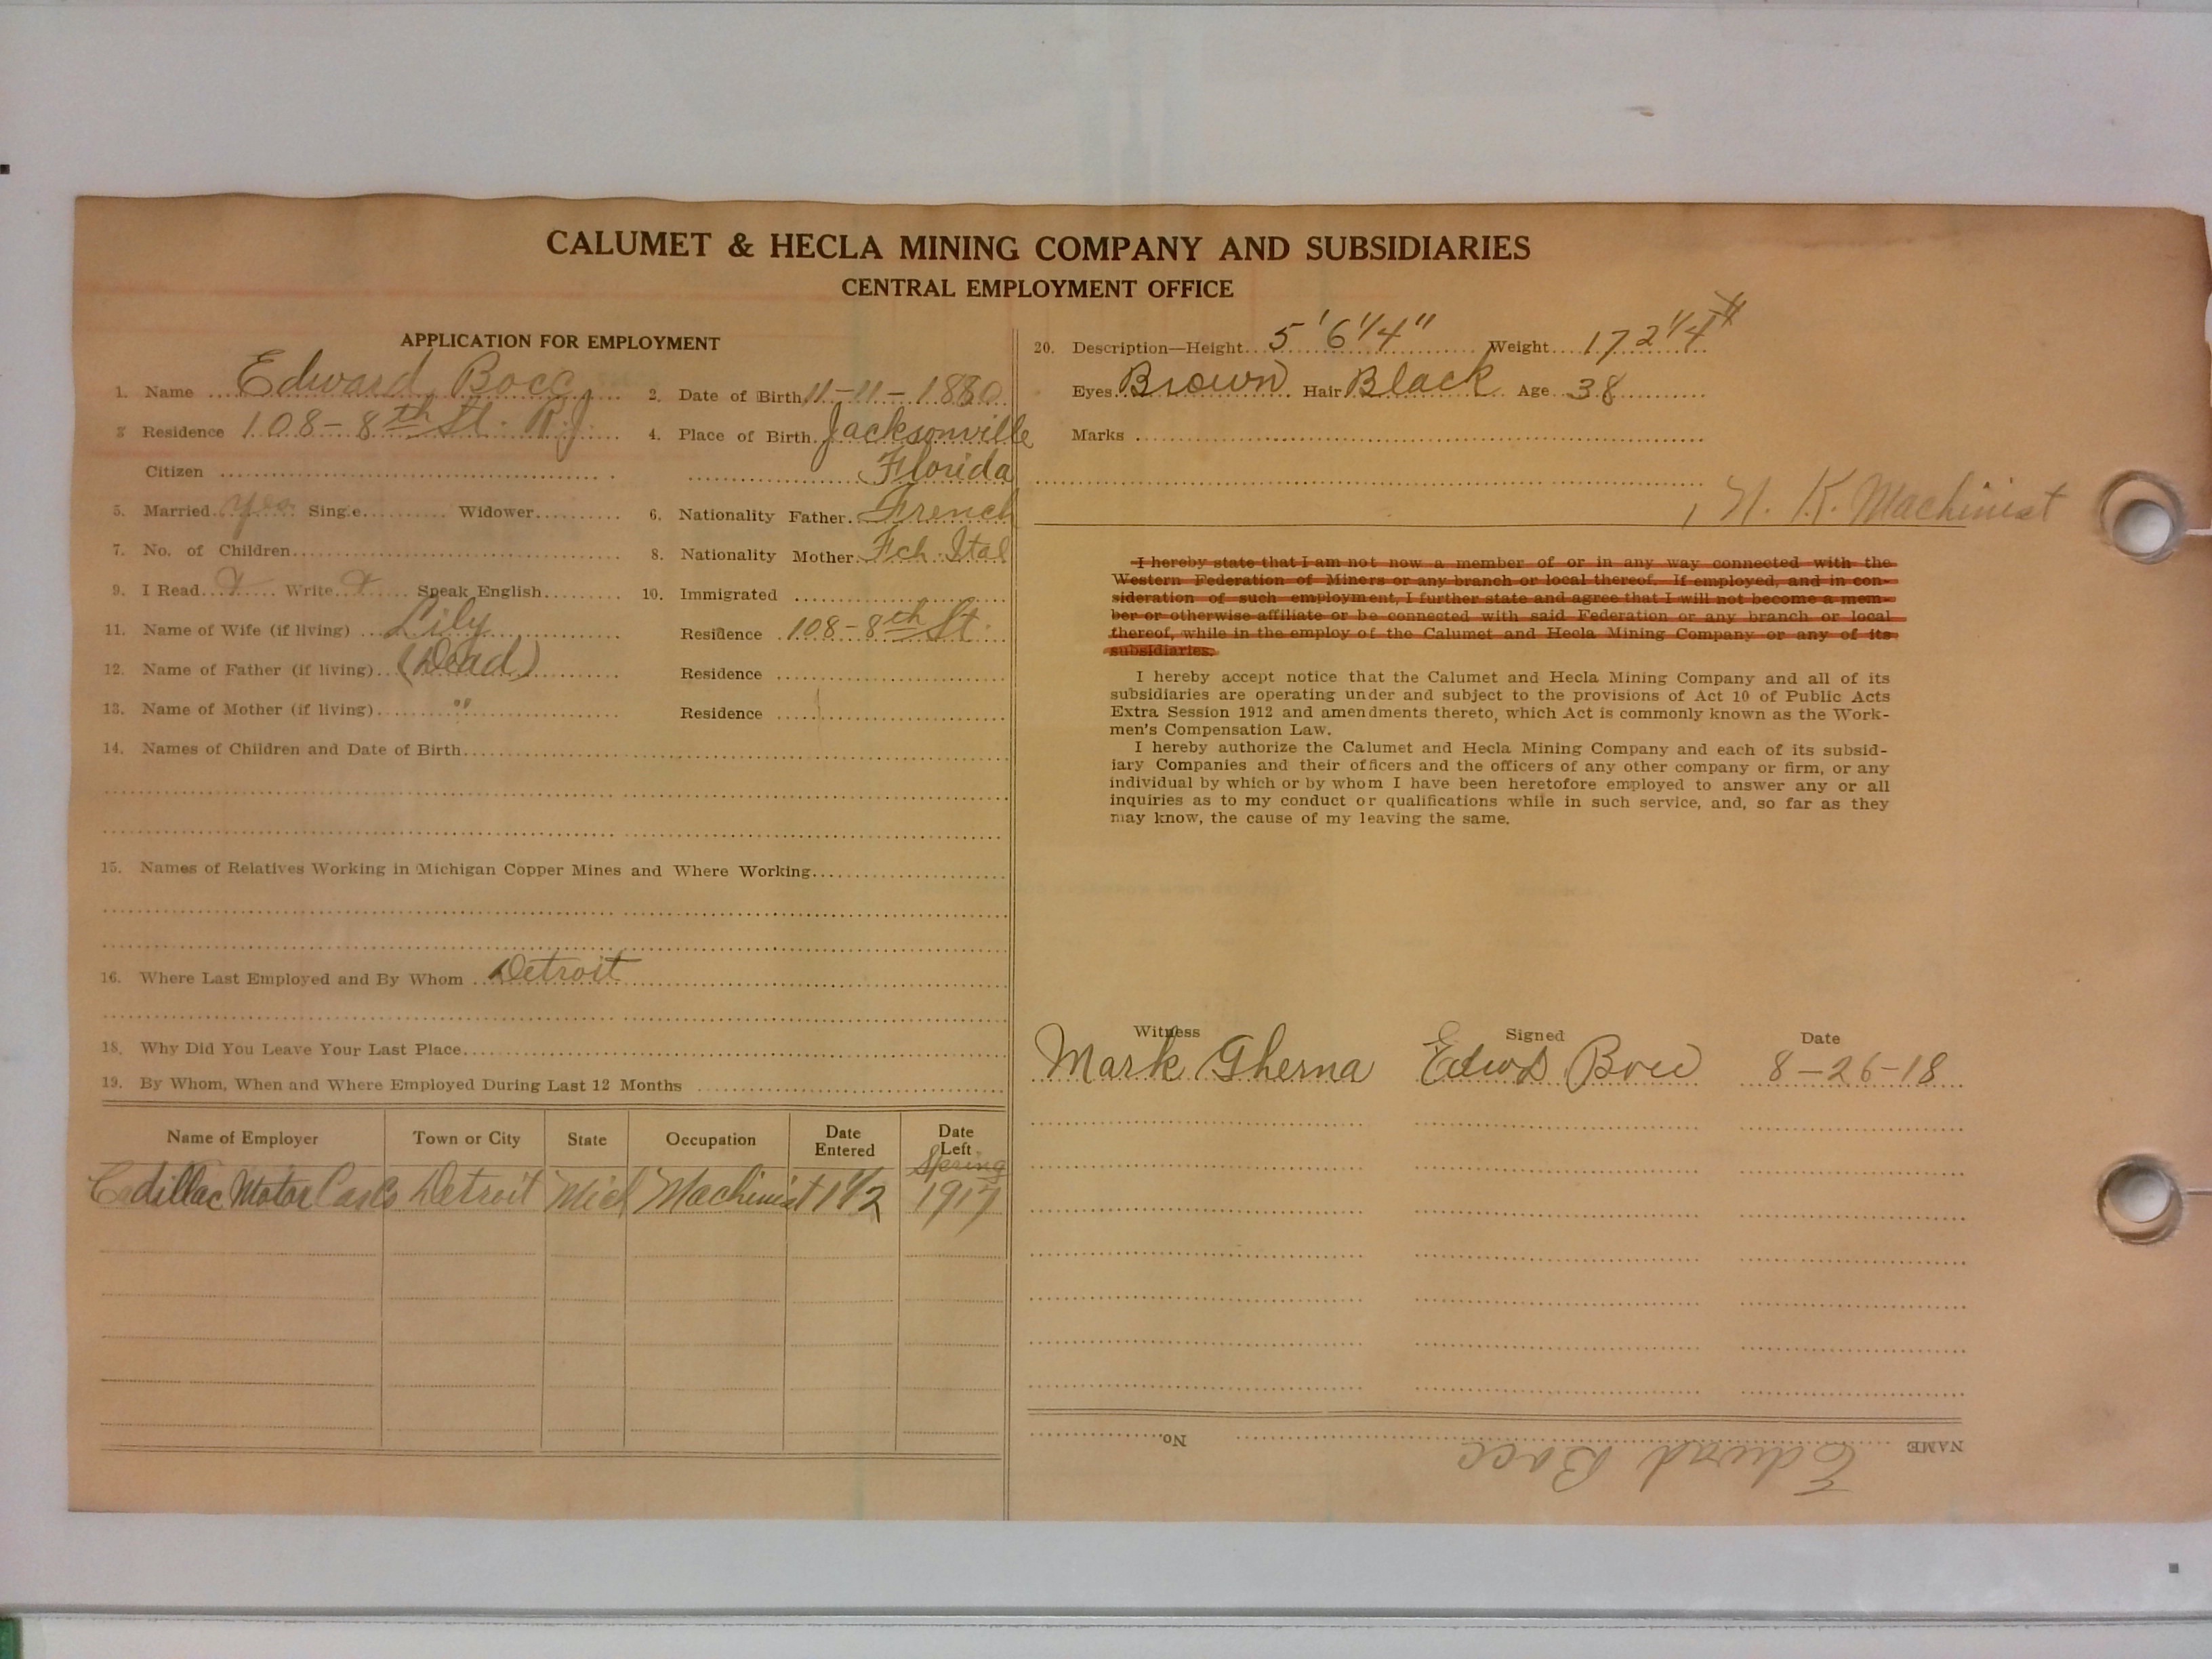 CALUMET & HECLA MINING COMPANY AND SUBSIDIARIES
CENTRAL EMPLOYMENT OFFICE
APPLICATION FOR EMPLOYMENT
1. Name Edward Bocc
2. Date of Birth 11-11-1880
3 Residence 108-8th St. R.J.
4. Place of Birth Jacksonville
Citizen
Florida
5. Married yes Single Widower
6. Nationality Father French
7. No. of Children
8. Nationality Mother Fch. Ital
9. I Read X Write X Speak English
10. Immigrated
11. Name of Wife (if living) Lily
Residence 108-8th St.
12. Name of Father (if living) (Dead)
Residence
13. Name of Mother (if living) "
Residence
14. Names of Children and Date of Birth
15. Names of Relatives Working in Michigan Copper Mines and Where Working
16. Where Last Employed and By Whom Detroit
18. Why Did You Leave Your Last Place
19. By Whom, When and Where Employed During Last 12 Months
Name of Employer Town or City State Occupation Date Entered Date Left
Spring
Cadillac Motor Car Co Detroit Mich Machinist 1 1/2 1917
20. Description—Height 5' 6 1/4" Weight 172 1/4 #
Eyes Brown Hair Black Age 38
Marks
N. K. Machinist
I hereby state that I am not now a member of or in any way connected with the
Western Federation of Miners or any branch or local thereof. If employed, and in con-
sideration of such employment, I further state and agree that I will not become a mem-
ber or otherwise affiliate or be connected with said Federation or any branch or local
thereof, while in the employ of the Calumet and Hecla Mining Company or any of its
subsidiaries.
I hereby accept notice that the Calumet and Hecla Mining Company and all of its
subsidiaries are operating under and subject to the provisions of Act 10 of Public Acts
Extra Session 1912 and amendments thereto, which Act is commonly known as the Work-
men's Compensation Law.
I hereby authorize the Calumet and Hecla Mining Company and each of its subsid-
iary Companies and their officers and the officers of any other company or firm, or any
individual by which or by whom I have been heretofore employed to answer any or all
inquiries as to my conduct or qualifications while in such service, and, so far as they
may know, the cause of my leaving the same.
Witness Signed Date
Mark Gherna Edwd Bocc 8-26-18
NAME Edward Bocc No.